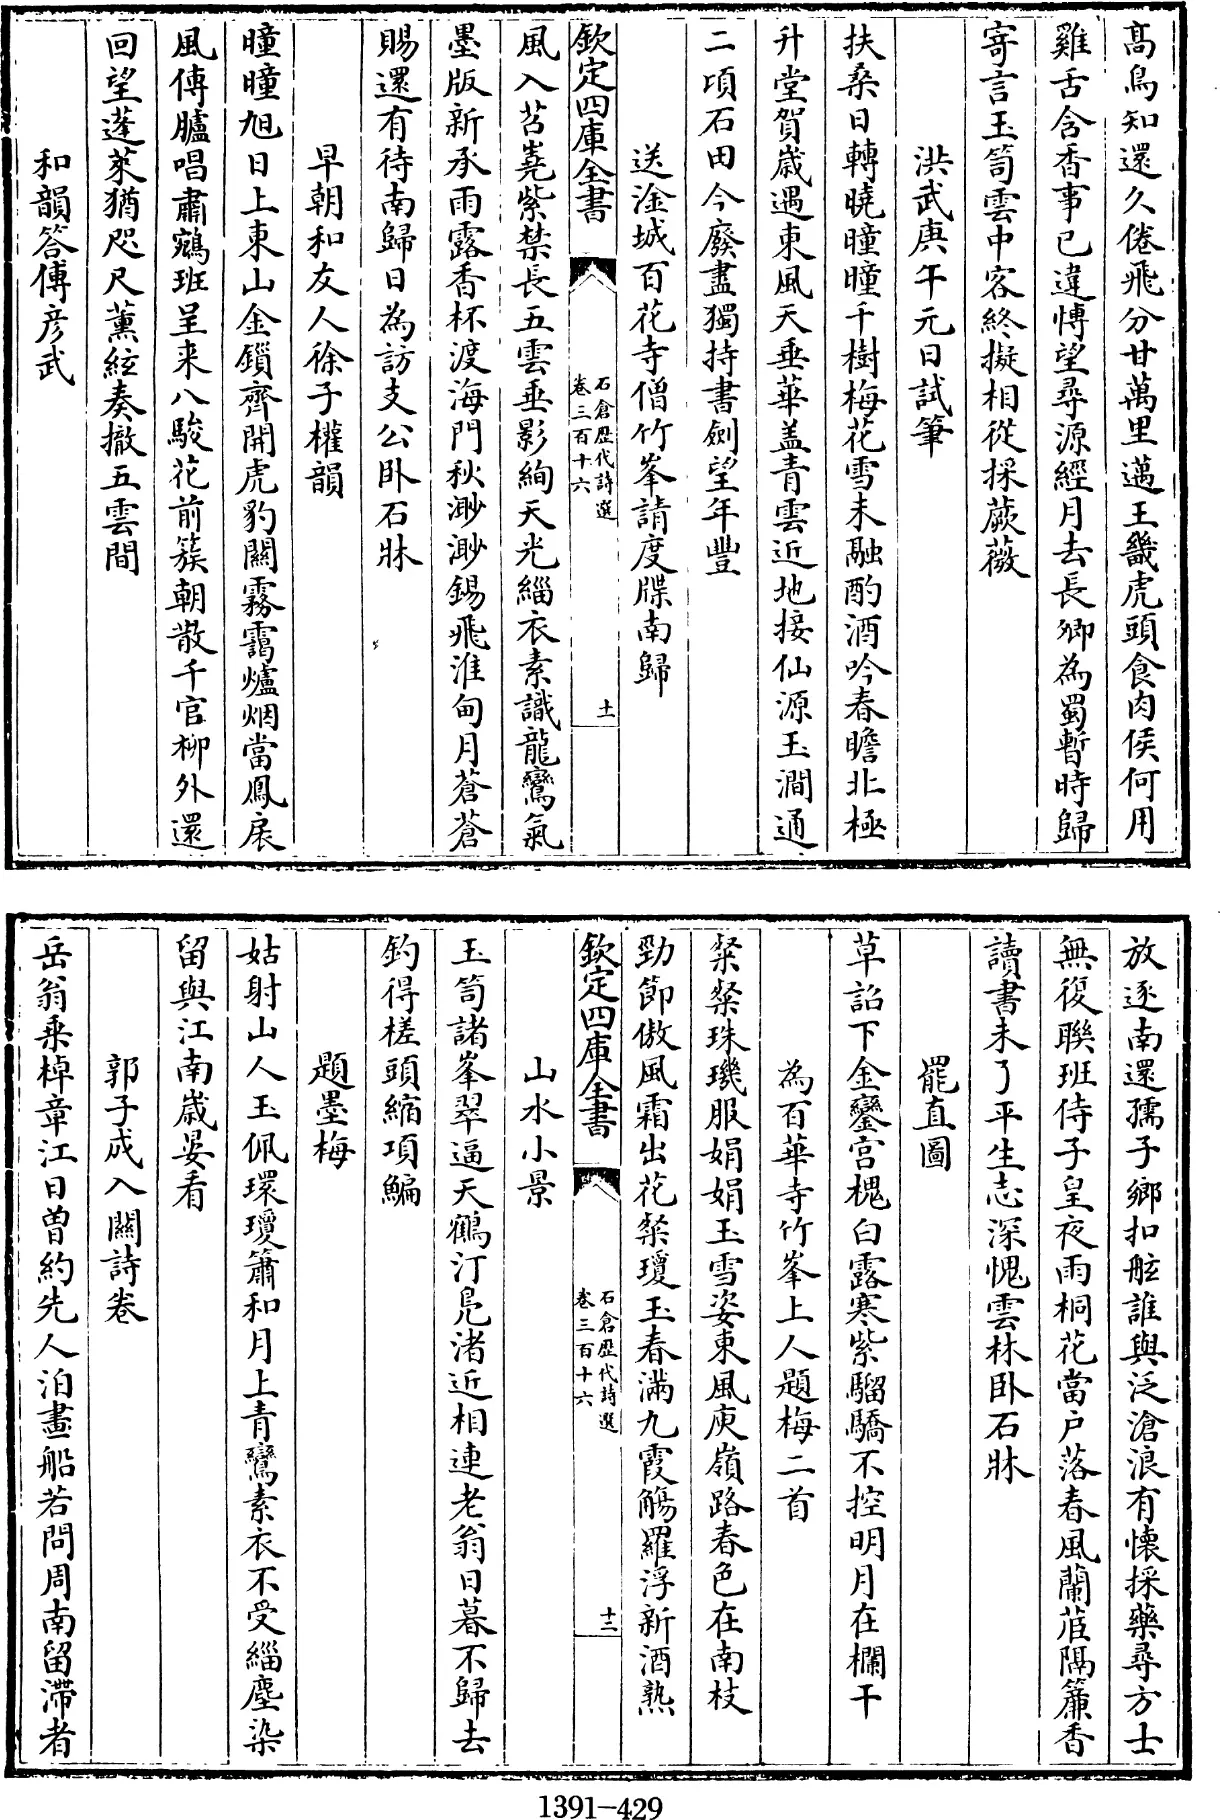 髙鳥知還久倦飛分甘萬里邁王畿虎頭食肉侯何用
雞舌含香事已違博望尋源經月去長卿為蜀暫時歸
寄言玉笥雲中客終擬相從採蕨薇
洪武庚午元日試筆
扶桑日轉曉曈曈千樹梅花雪未融酌酒吟春瞻北極
升堂賀歲遇東風天垂華盖青雲近地接仙源玉澗通
二頃石田今廢盡獨持書劍望年豐
送淦城百花寺僧竹峯請度牒南歸
欽定四庫全書
石倉歷代詩選
卷三百十六
十一
風入苕嶤紫禁長五雲垂影絢天光緇衣素識龍鸞氣
墨版新承雨露香杯渡海門秋渺渺錫飛淮甸月蒼蒼
賜還有待南歸日為訪支公卧石牀
早朝和友人徐子權韻
曈曈旭日上東山金鎖齊開虎豹闗霧靄爐烟當鳳扆
風傳臚唱肅鵷班呈来八駿花前簇朝散千官柳外還
回望蓬萊猶咫尺薰絃奏撤五雲間
和韻答傅彦武
放逐南還孺子鄉扣舷誰與泛滄浪有懷採藥尋方士
無復聯班侍子皇夜雨桐花當户落春風蘭茝隔簾香
讀書未了平生志深愧雲林卧石牀
罷直圖
草詔下金鑾宫槐白露寒紫騮驕不控明月在欄干
為百華寺竹峯上人題梅二首
粲粲珠璣服娟娟玉雪姿東風庾嶺路春色在南枝
勁節傲風霜出花粲瓊玉春滿九霞觴羅浮新酒熟
欽定四庫全書
石倉歷代詩選
卷三百十六
十二
山水小景
玉笥諸峯翠逼天鶴汀鳬渚近相連老翁日暮不歸去
釣得槎頭縮項鯿
題墨梅
姑射山人玉佩環瓊簫和月上青鸞素衣不受緇塵染
留與江南歲晏看
郭子成入闗詩卷
岳翁乘棹章江日曽約先人泊畫船若問周南留滯者
1391-429